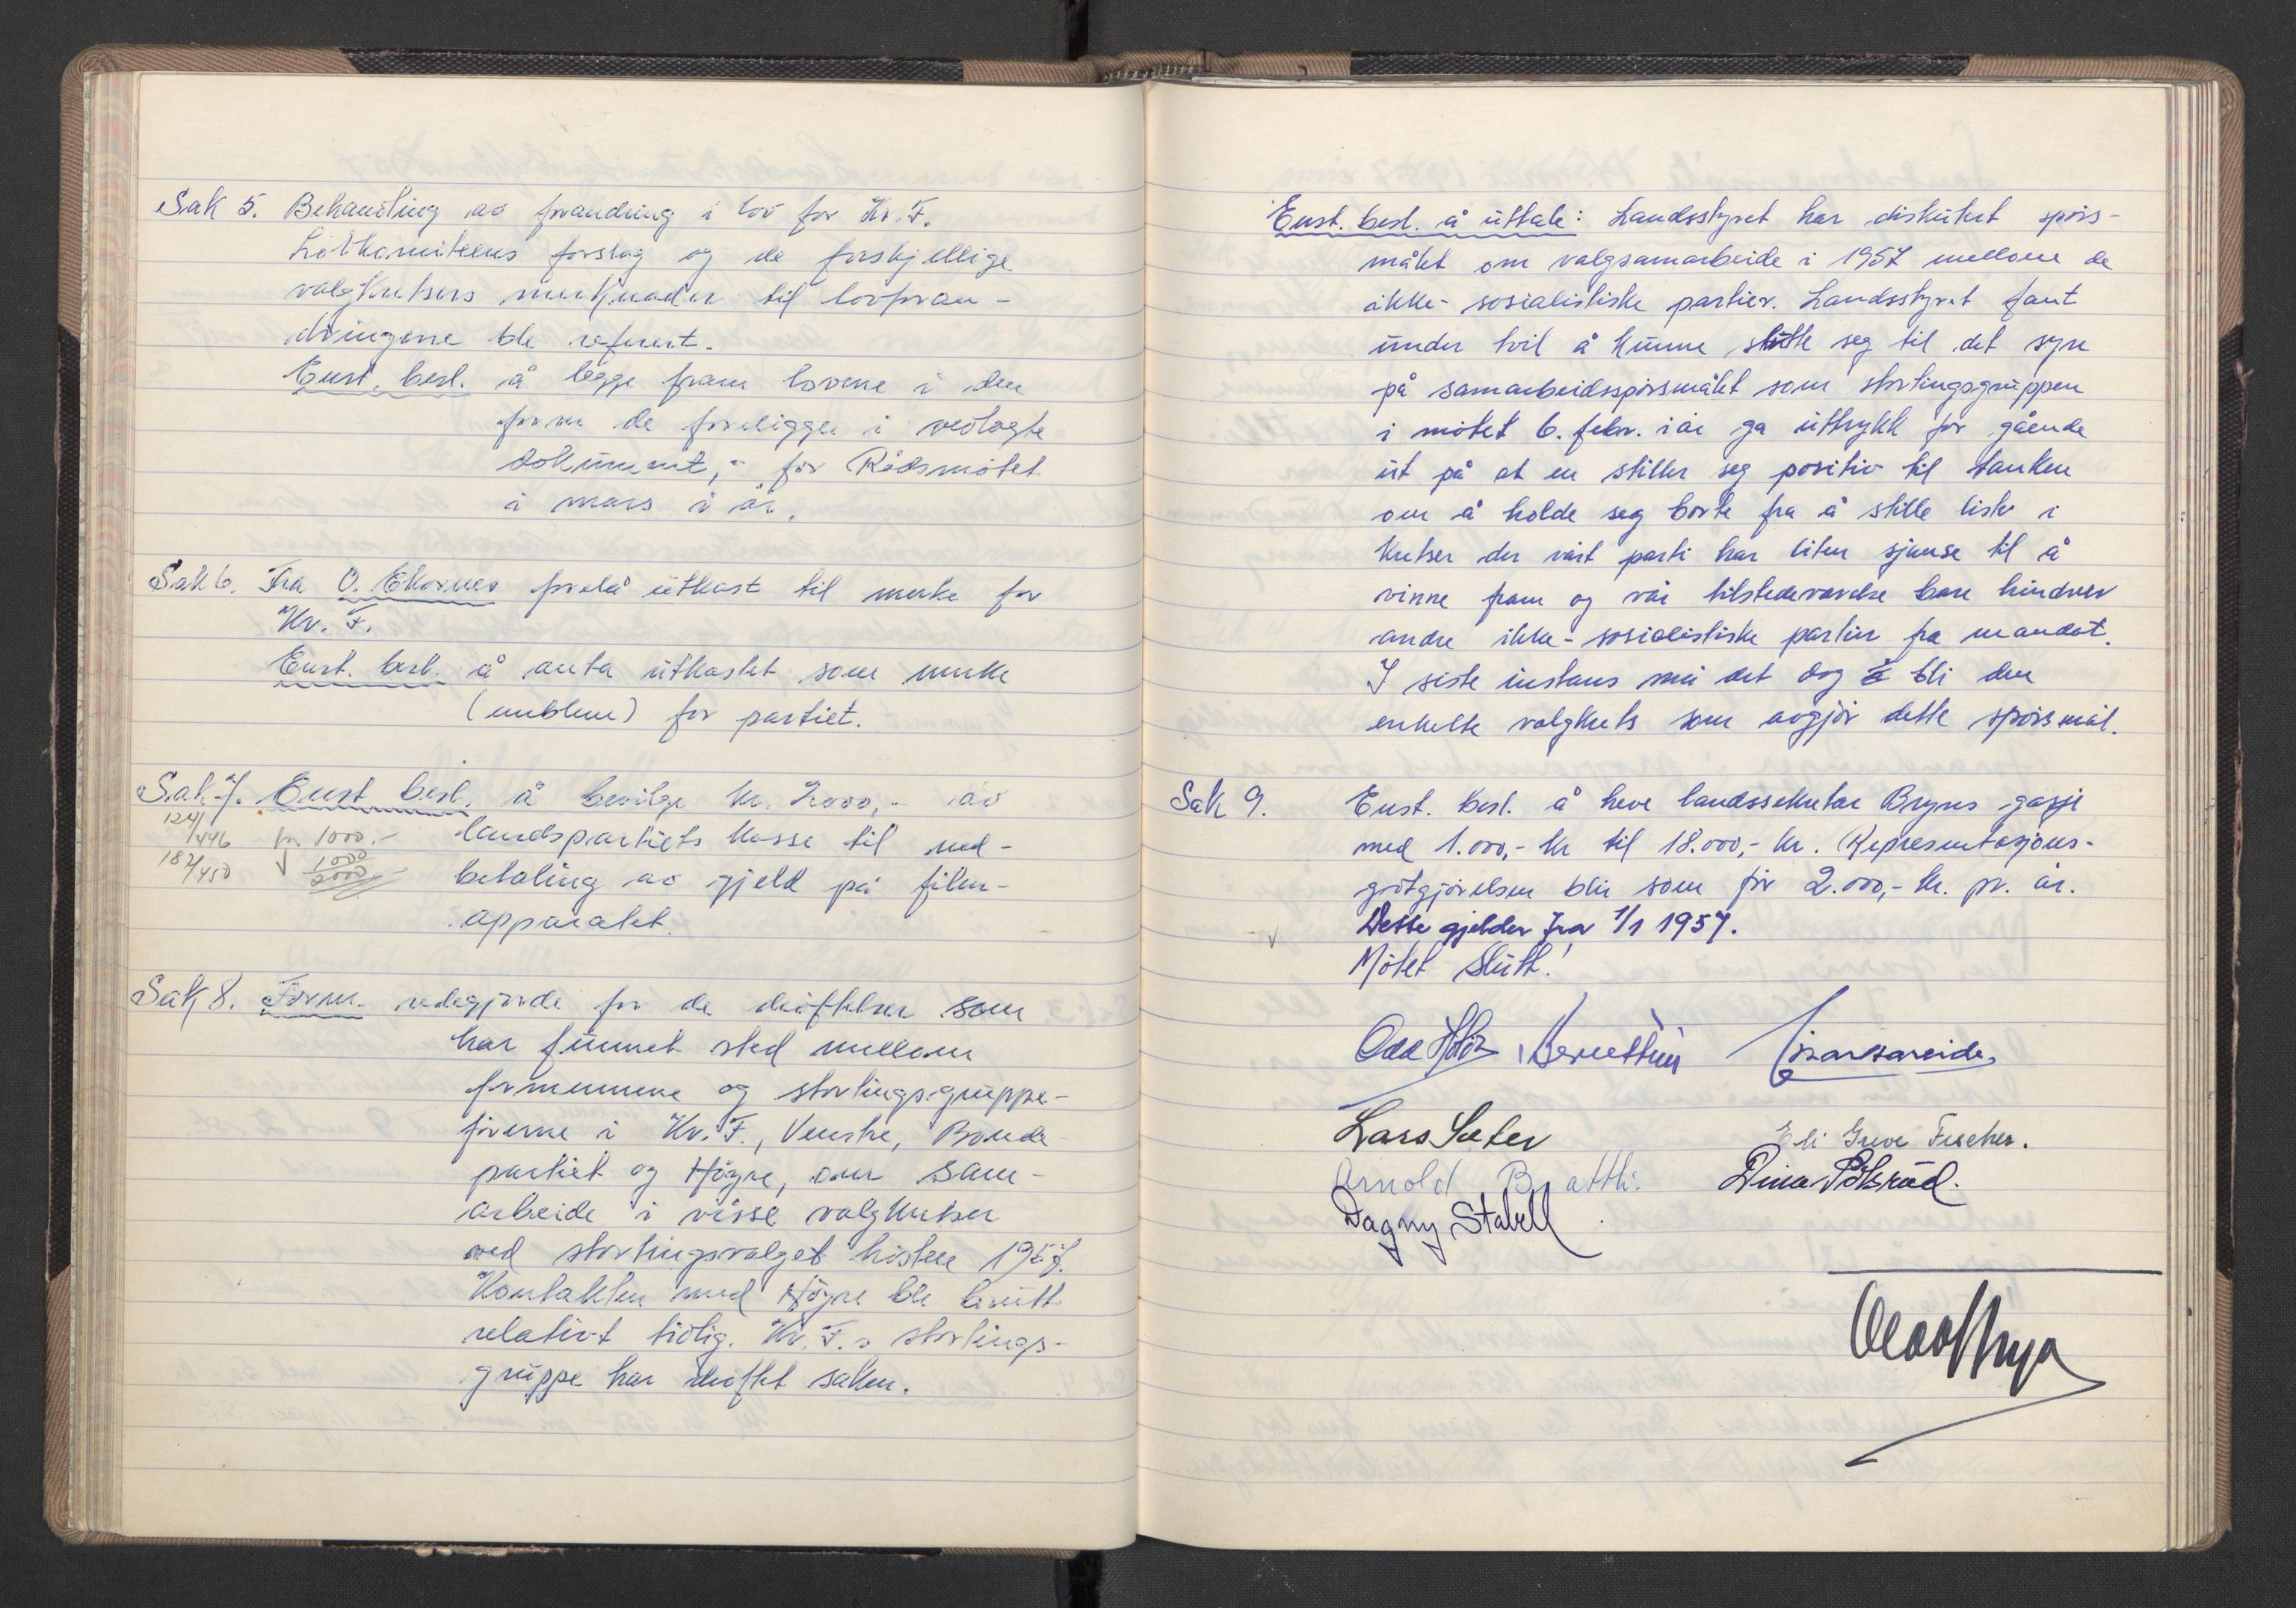 Sak 5. Behandling av forandring i lov for Kr. F.
Lovkomiteens forslag og de forskjellige
valgkretsers merknader til lovforan-
dringene ble referert.
Enst. besl. å legge fram lovene i den
form de foreligger i vedlagte
dokument, - for Rådsmøtet
i mars i år.
Sak 6. Fra O. Ekornes forelå utkast til merke for
Kr. F.
Enst. besl. å anta utkastet som merke
(emblem) for partiet.
Sak 7. Enst. besl. å bevilge kr. 2000,- av
landspartiets kasse til ned-
betaling av gjeld på film-
apparatet.
124/446 kr 1000.-
182/450 1000
2000,-
Sak 8. Form. redegjorde for de drøftelser som
har funnet sted mellom
formennene og stortingsgruppe-
førerne i Kr. F., Venstre, Bonde-
partiet og Høgre, om sam-
arbeide i visse valgkretser
ved stortingsvalget høsten 1957.
Kontakten med Høgre ble brutt
relativt tidlig. Kr. F.s stortings-
gruppe har drøftet saken.
Enst. besl. å uttale: Landsstyret har diskutert spørs-
målet om valgsamarbeide i 1957 mellom de
ikke-sosialistiske partier. Landsstyret fant
under tvil å kunne slutte seg til det syn
på samarbeidsspørsmålet som stortingsgruppen
i møtet 6. febr. i år ga uttrykk for gående
ut på at en stiller seg positiv til tanken
om å holde seg borte fra å stille lister i
kretser der vårt parti har liten sjanse til å
vinne fram og vår tilstedeværelse bare hindrer
andre ikke-sosialistiske partier fra mandat.
I siste instans må det dog bli den
enkelte valgkrets som avgjør dette spørsmål.
Sak 9. Enst. besl. å heve landssekretær Bryns gasje
med 1.000,- kr til 18.000,- kr. (Representasjons-
godtgjørelsen blir som før 2.000,- kr. pr. år.
Dette gjelder fra 1/1 1957.
Møtet slutt!
Lars Sæter
Eli Greve Fischer.
Arnold Bratthi.
Dagny Stabell